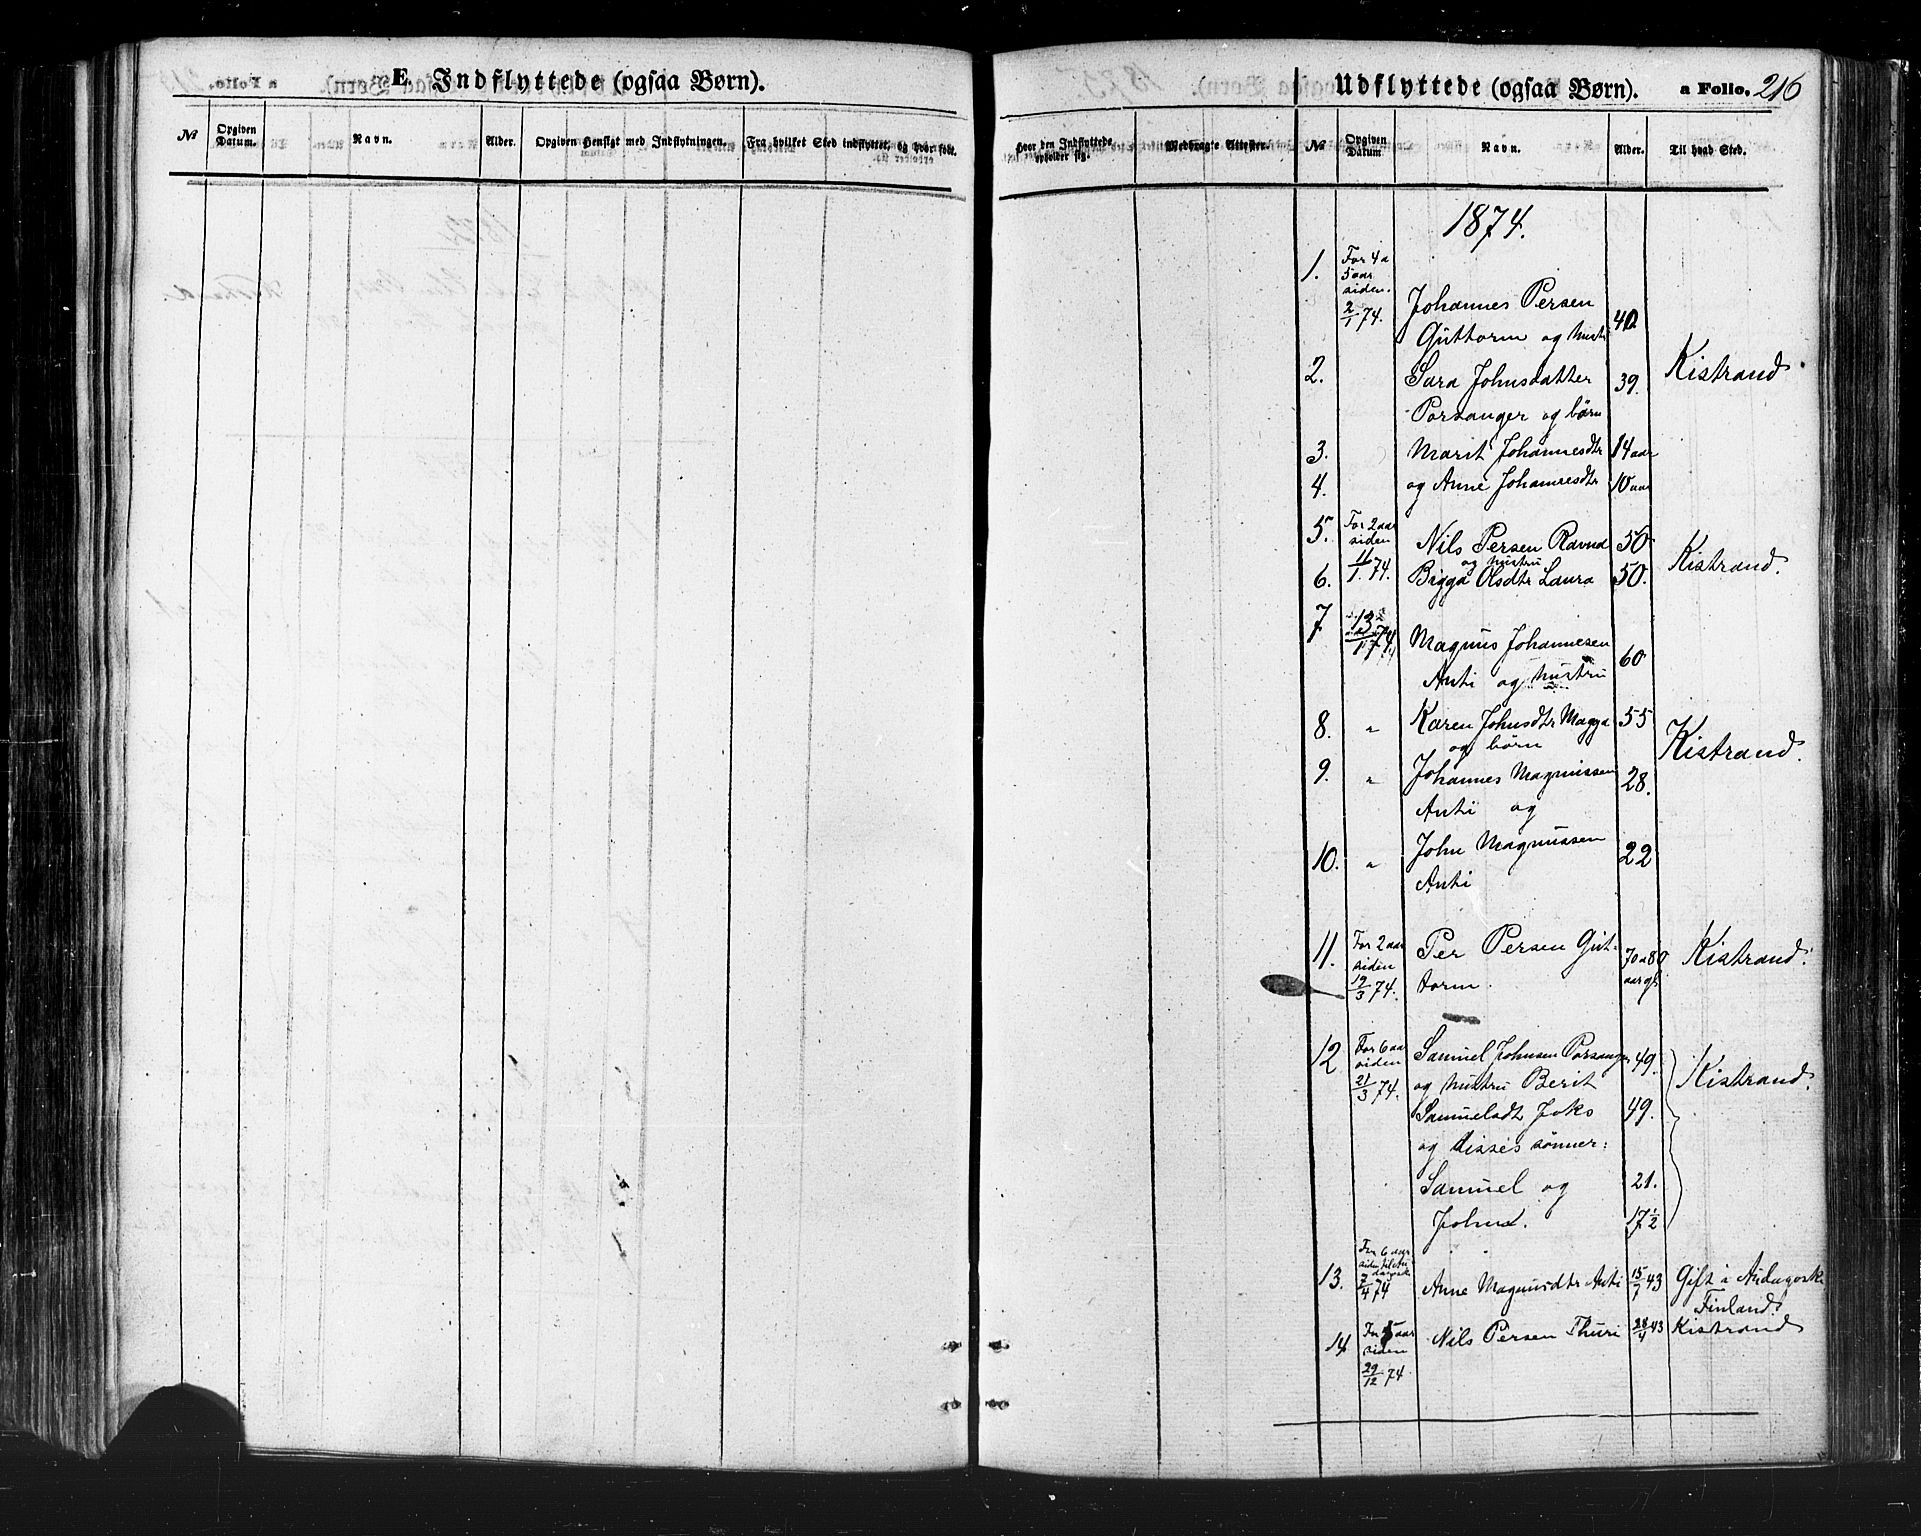 E. Indflyttede (ogsaa Børn).
№
Opgiven Datum.
Navn.
Alder.
Opgiven Hensigt med Indflytningen.
Fra hvilket Sted indflyttet, og hvor født.
Hvor den Indflyttede opholder sig.
Medbragte Attester.
Udflyttede (ogsaa Børn).
a Folio. 216
№
Opgiven Datum
Navn.
Alder.
Til hvad Sted.
1874.
1. For 4 a 5 aar siden. 2/1 74. Johannes Persen
Guttorm og hustr 40. Kistrand
2. Sara Johnsdatter 39.
Porsanger og børn
3. Marit Johannesdtr 14 aar
4. og Anne Johannesdtr 10 aar
5. For 2 aar siden 11/1 74. Nils Persen Ravna 50 Kistrand.
og hustru
6. Bigga Olsdtr Laura 50.
7 13/1 74 Magnus Johannesen
Anti og hustru 60
8. " Karen Johnsdtr Magga 55 Kistrand.
og børn
9. " Johannes Magnussen 28.
Anti og
10. " John Magnussen 22
Anti
11. For 2 aar siden 19/3 74. Per Persen Gut- 70 a 80 Kistrand.
torm. aar gl
12 For 6 aar siden 21/3 74. Samuel Johnsen Porsanger 49. Kistrand.
og hustru Berit
Samuelsdt Joks 49.
og disses sønner:
Samuel og 21.
John. 17½
13. For 6 aar siden 7/4 74 Anne Magnusdtr Anti 15/1 43 Gift i
Finland.
14 For 5 aar siden 29/12 74 Nils Persen Thuri 28/4 43 Kistrand